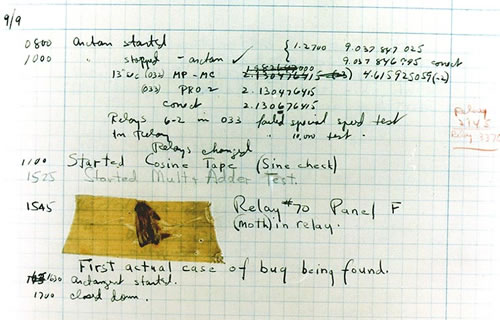 9/9
0800 antan started
1000 " stopped - antan ✓ { 1.2700 9.037 847 025
9.037 846 995 correct
13"uc (032) MP-MC 2.130476415 4.615925059(-2)
(033) PRO 2 2.130476415
correct 2.130676415
Relays 6-2 in 033 failed special speed test
in relay " 10,000 test .
Relays changed
Relay
1100 Started Cosine Tape (Sine check)
1525 Started Mult + Adder Test.
1545 Relay #70 Panel F
(moth) in relay.
First actual case of bug being found.
1630 antangent started.
1700 closed down.